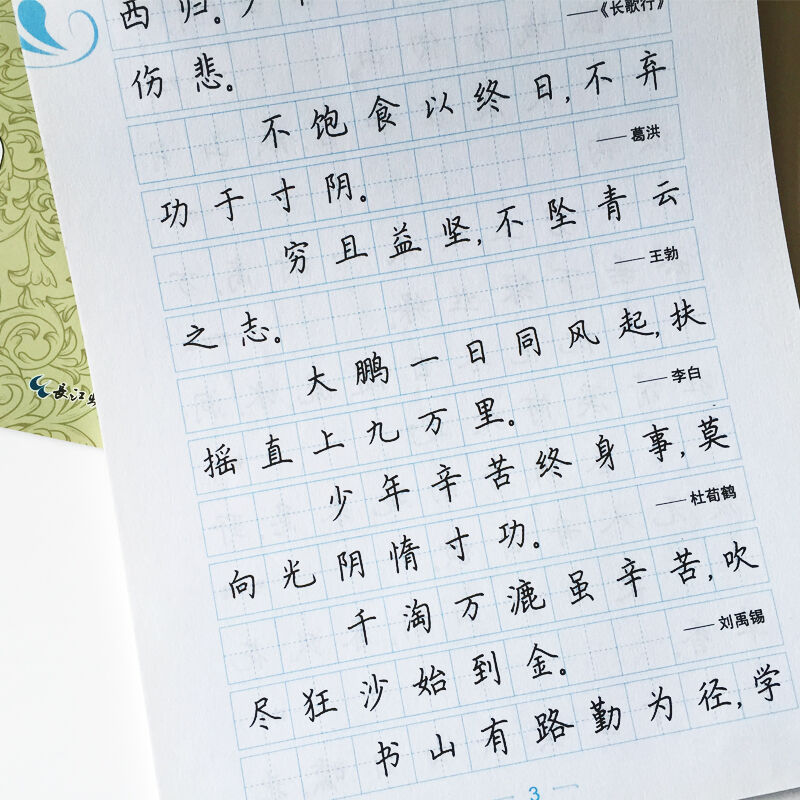 西归。
——《长歌行》
伤悲。
不饱食以终日，不弃
——葛洪
功于寸阴。
穷且益坚，不坠青云
——王勃
之志。
大鹏一日同风起，扶
——李白
摇直上九万里。
少年辛苦终身事，莫
——杜荀鹤
向光阴惰寸功。
千淘万漉虽辛苦，吹
——刘禹锡
尽狂沙始到金。
书山有路勤为径，学
3
长江